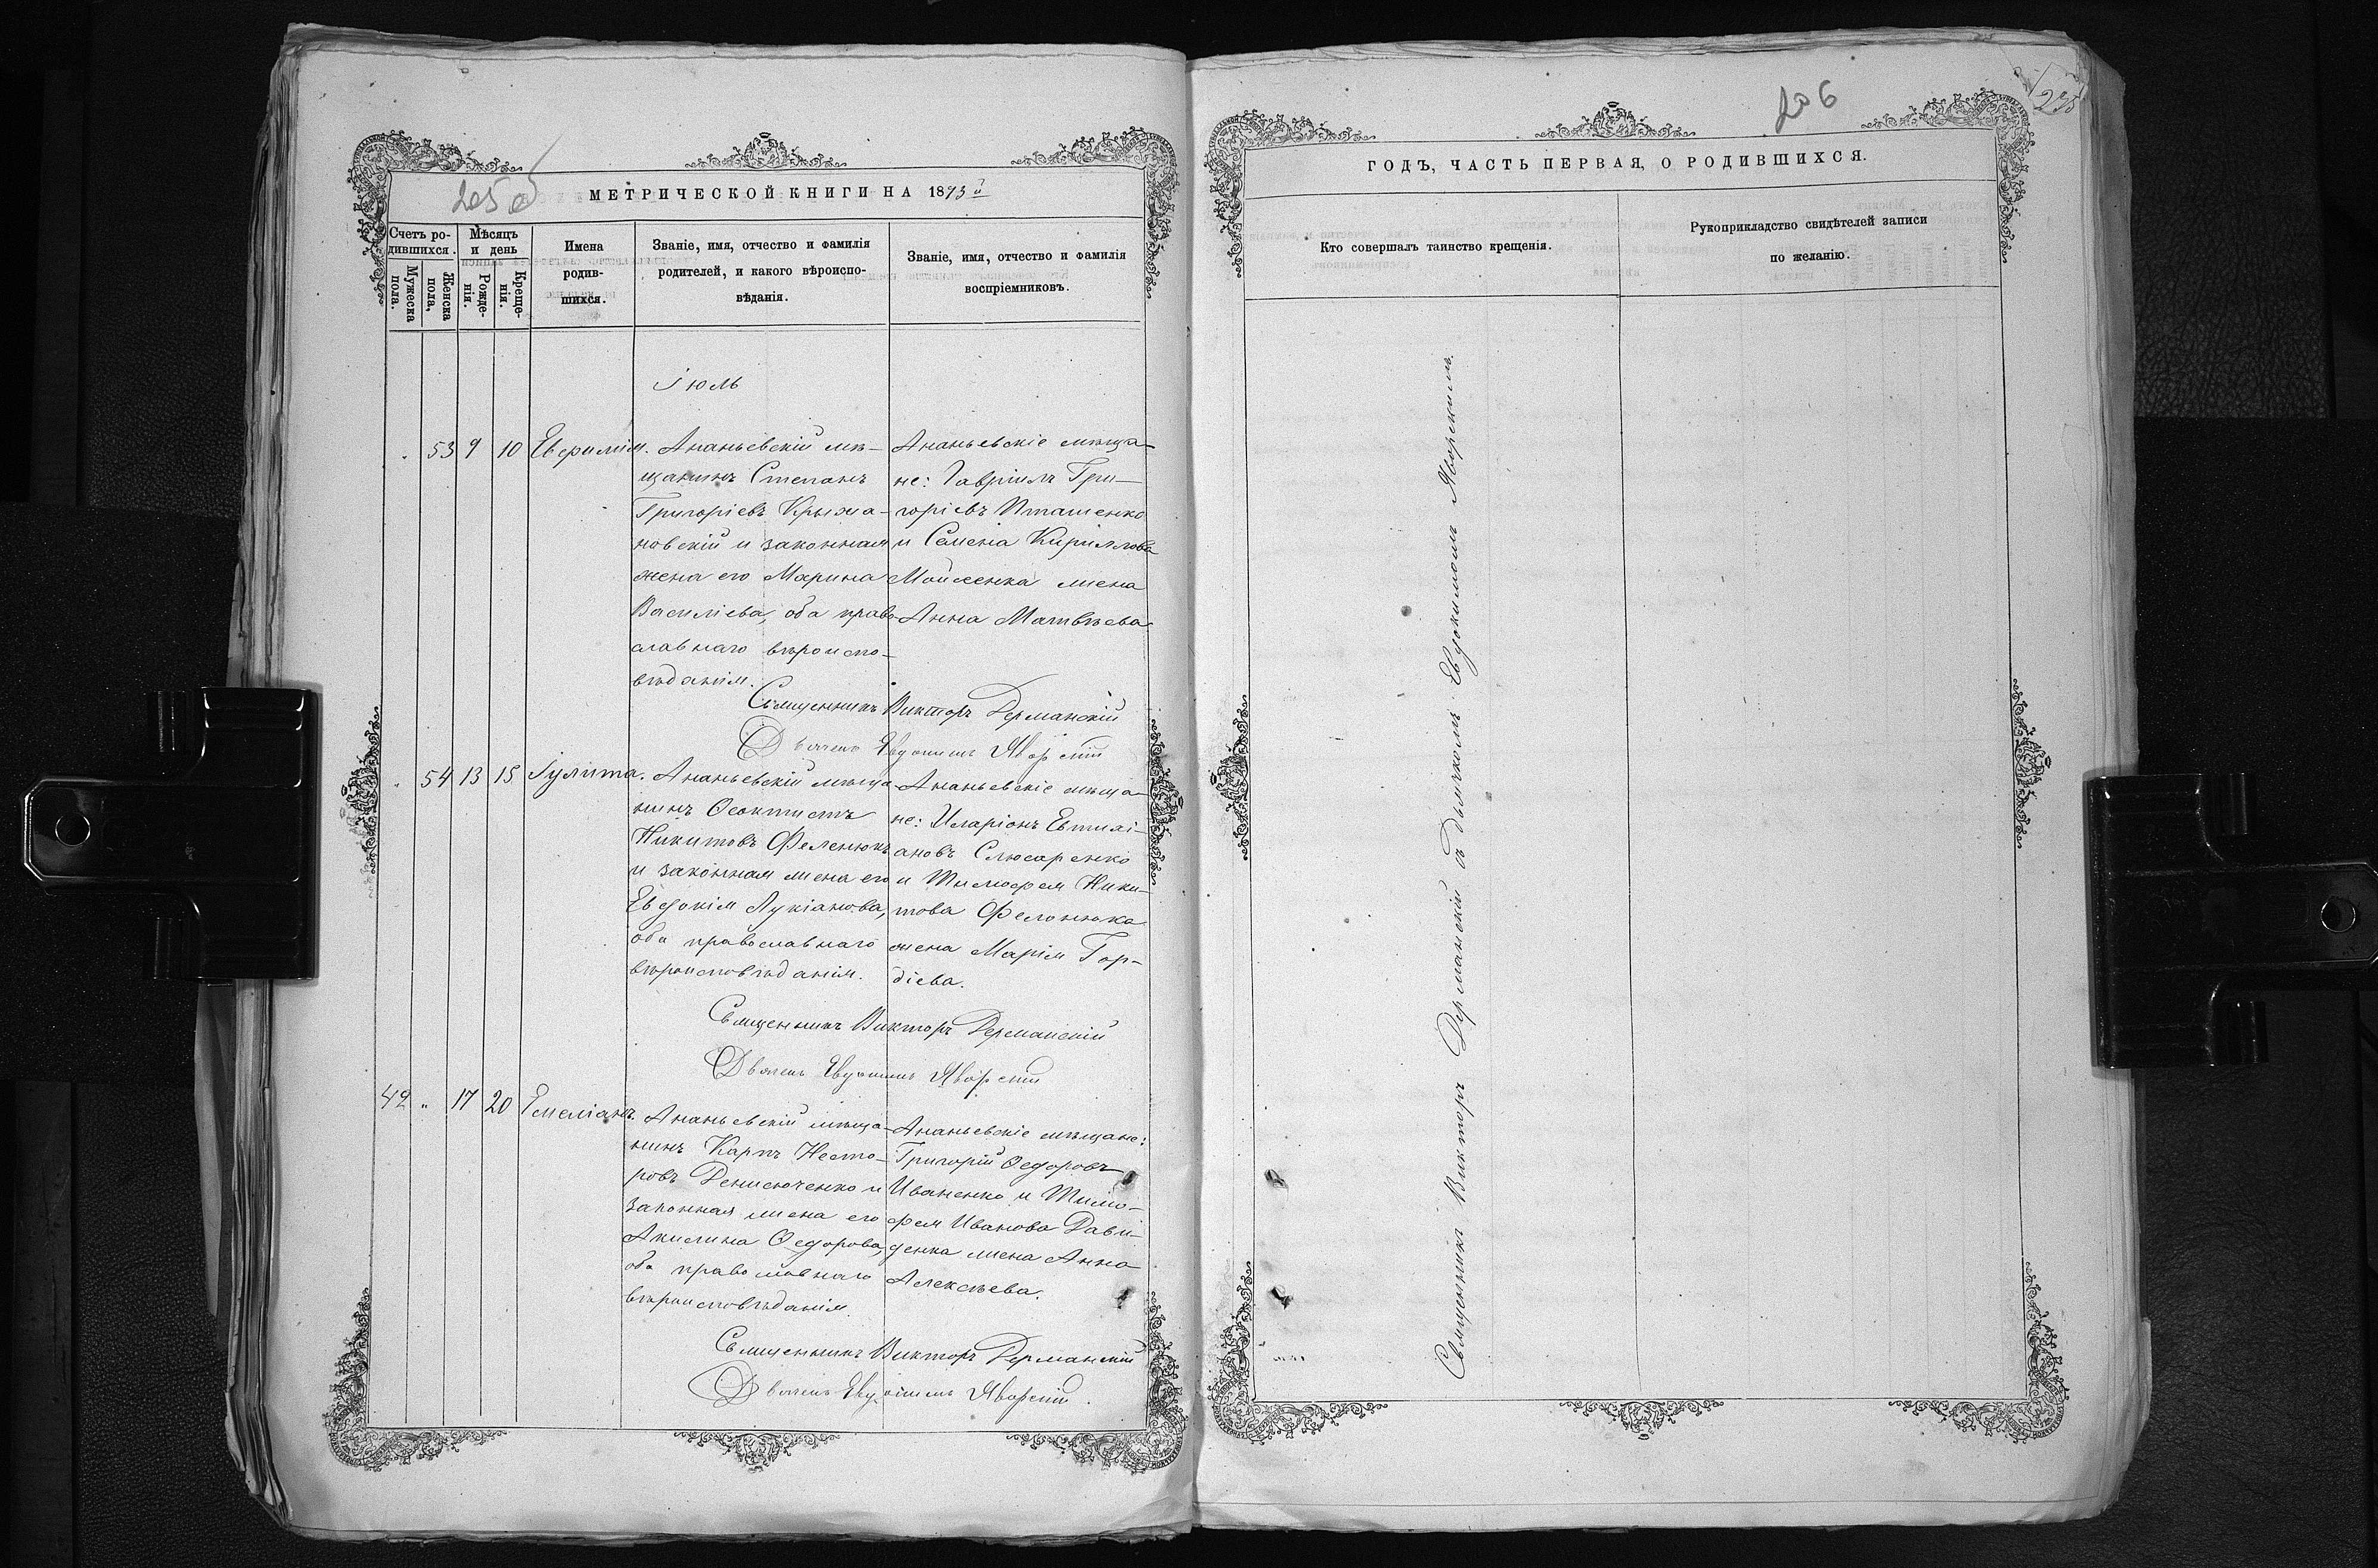 205 об
МЕТРИЧЕСКОЙ КНИГИ НА 1873й
Счетъ ро-
дившихся.
Мужеска
пола.
Женска
пола.
Мѣсяцъ
и день
Рожде-
нія.
Креще-
нія.
Имена
родив-
шихся.
Званіе, имя, отчество и фамилія
родителей, и какого вѣроиспо-
вѣданія.
Званіе, имя, отчество и фамилія
воспріемниковъ.
Іюль
53 9 10 Евфимія.
Ананьевскій мѣ-
щанинъ Степанъ
Григоріевъ Крыжа-
новскій и законная
жена его Марина
Василіева, оба право-
славнаго вѣроиспо-
вѣданія.
Ананьевскіе мѣща-
не: Гавріилъ Гри-
горіевъ Пташенко
и Семена Кириллова
Мойсенка жена
Анна Матвѣева
Священникъ Викторъ Дерманскій
Дьячекъ Евдокимъ Яворскій
54 13 15 Іулита.
Ананьевскій мѣща-
нинъ Ѳеоктистъ
Никитовъ Феленюкъ
и законная жена его
Евдокія Лукіанова,
оба православнаго
вѣроисповѣданія.
Ананьевскіе мѣща-
не: Иларіонъ
ановъ Слюсаренко
и Тимофея Ники-
това Фелонюка
жена Марія Гор-
діева.
Священникъ Викторъ Дерманскій
Дьячекъ Евдокимъ Яворскій
42 " 17 20 Емеліанъ.
Ананьевскій мѣща-
нинъ Карпъ Несто-
ровъ Денисюченко и
законная жена его
Акилина Ѳедорова,
оба православнаго
вѣроисповѣданія.
Ананьевскіе мѣщане:
Григорій Ѳедоровъ
Иваненко и Тимо-
фея Иванова Дави-
денка жена Анна
Алексѣева.
Священникъ Викторъ Дерманскій
Дьячекъ Евдокимъ Яворскій.
206
ГОДЪ, ЧАСТЬ ПЕРВАЯ, О РОДИВШИХСЯ.
Кто совершалъ таинство крещенія.
Рукоприкладство свидѣтелей записи
по желанію.
Священникъ Викторъ Дерманскій съ дьячкомъ Евдокимомъ Яворскимъ.